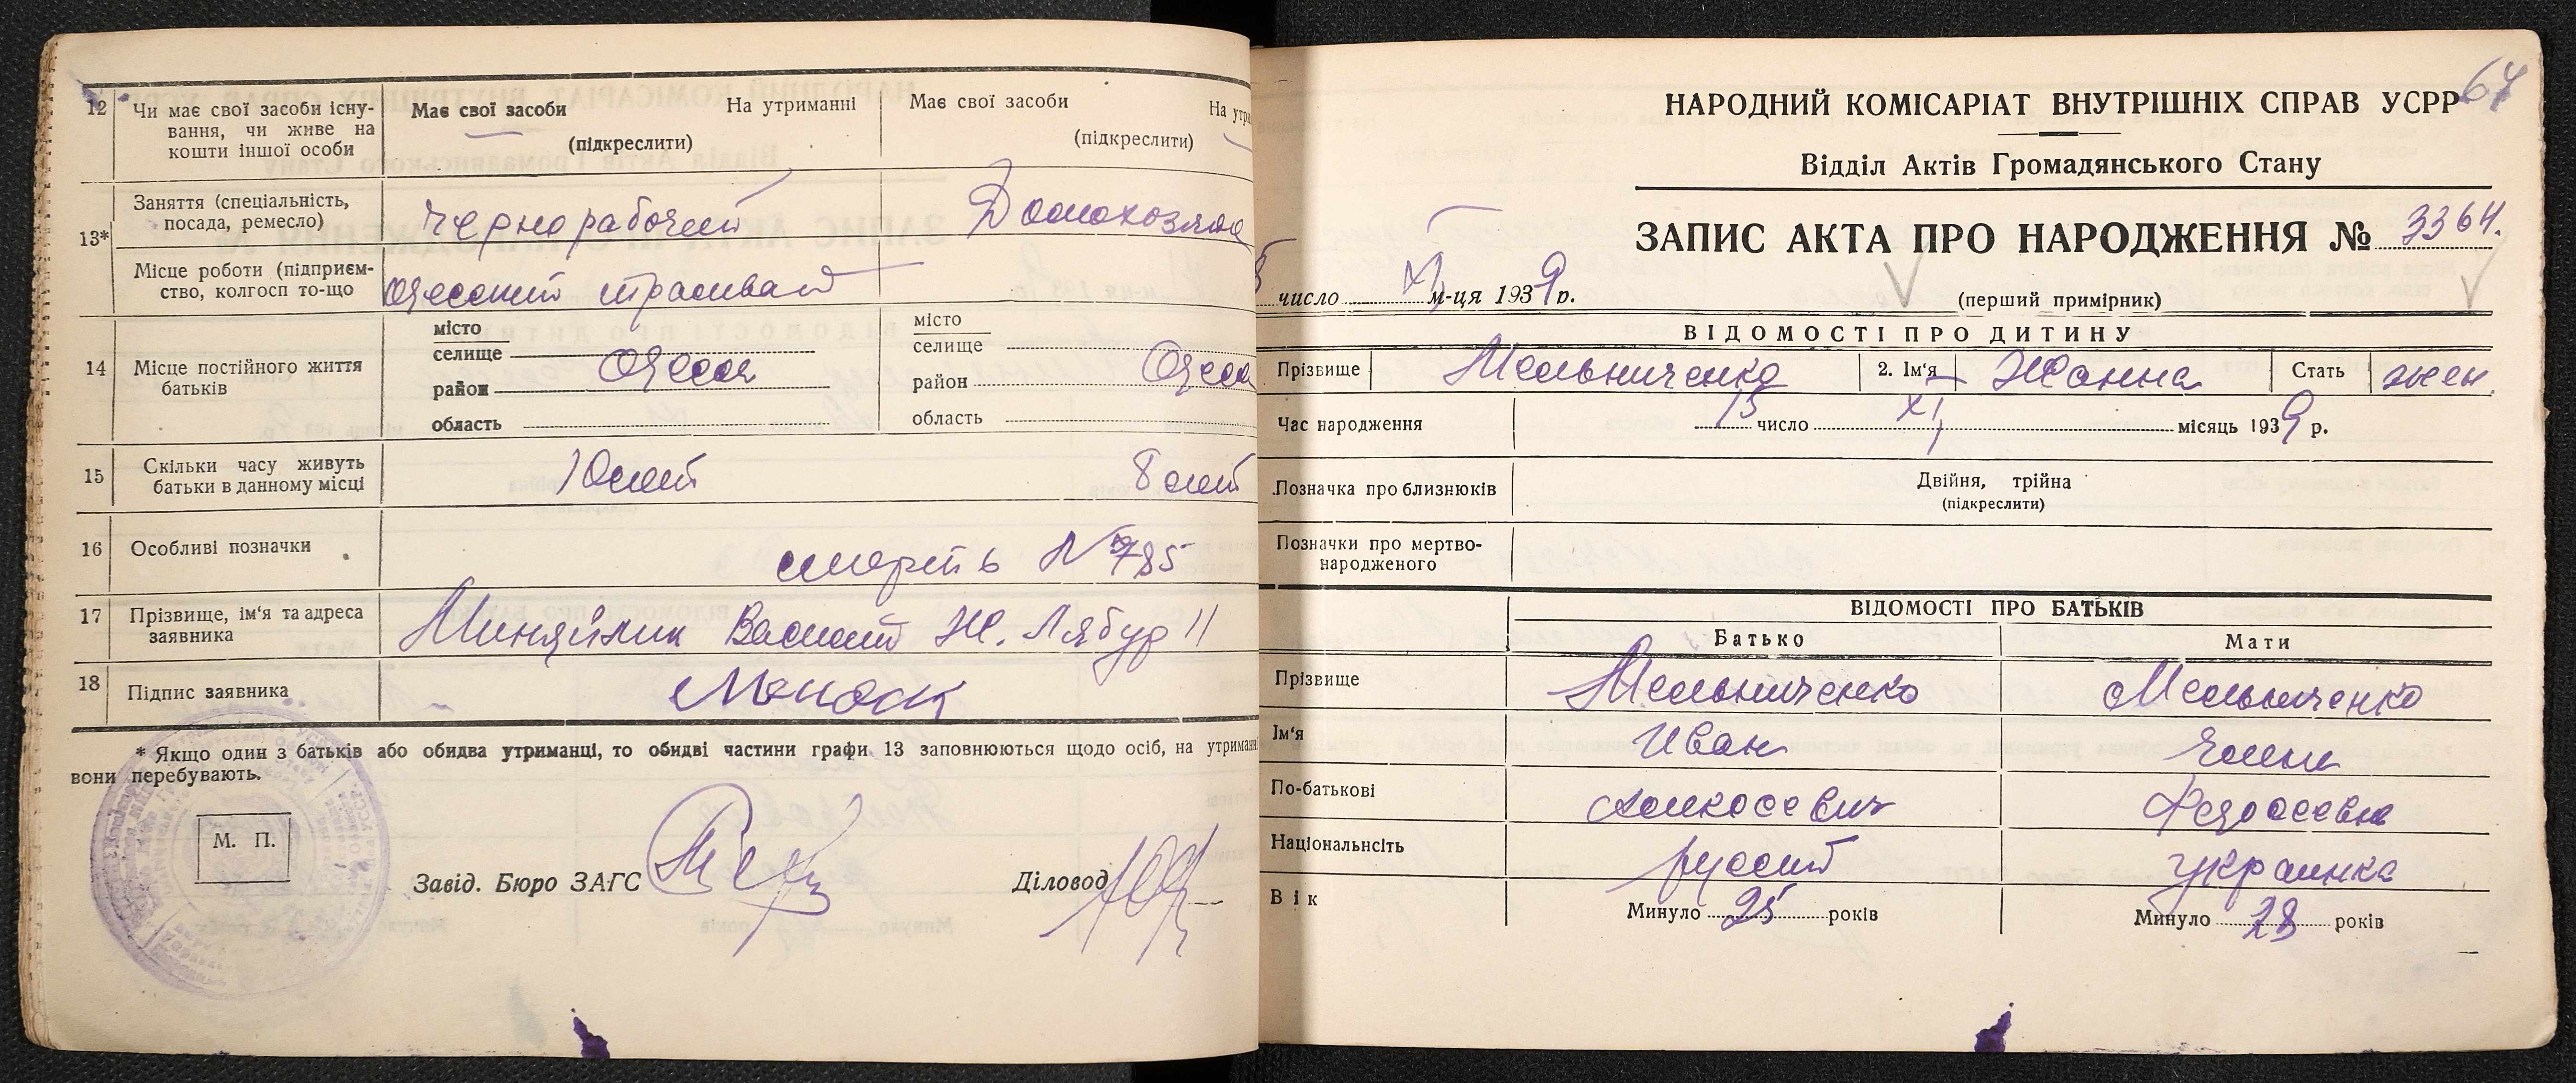 12 Чи має свої засоби існу-
вання, чи живе на
кошти іншої особи
Має свої засоби На утриманні
(підкреслити)
Має свої засоби На утри
(підкреслити)
13* Заняття (спеціальність,
посада, ремесло)
чернорабочий
Домохозяйка
Місце роботи (підприєм-
ство, колгосп то-що
Одесский трамвай
14 Місце постійного життя
батьків
місто
селище
район
область
Одесса
місто
селище
район
область
Одесса
15 Скільки часу живуть
батьки в данному місці
10 лет
8 лет
16 Особливі позначки
смерть № 785
17 Прізвище, ім'я та адреса
заявника
Василий Ж. Лябур 11
18 Підпис заявника
* Якщо один з батьків або обидва утриманці, то обидві частини графи 13 заповнюються щодо осіб, на утриманні
вони перебувають.
М. П.
Завід. Бюро ЗАГС
Діловод
64
НАРОДНИЙ КОМІСАРІАТ ВНУТРІШНІХ СПРАВ УСРР
Відділ Актів Громадянського Стану
ЗАПИС АКТА ПРО НАРОДЖЕННЯ № 3364.
число XI м-ця 1939 р.
(перший примірник)
ВІДОМОСТІ ПРО ДИТИНУ
Прізвище Мельниченко 2. Ім'я Жанна Стать жен.
Час народження 15 число XI місяць 1939 р.
Позначка про близнюків
Двійня, трійна
(підкреслити)
Позначки про мертво-
народженого
ВІДОМОСТІ ПРО БАТЬКІВ
Батько Мати
Прізвище Мельниченко Мельниченко
Ім'я Иван
По-батькові Федосеевна
Національнсіть русский украинка
Вік Минуло 25 років Минуло 28 років